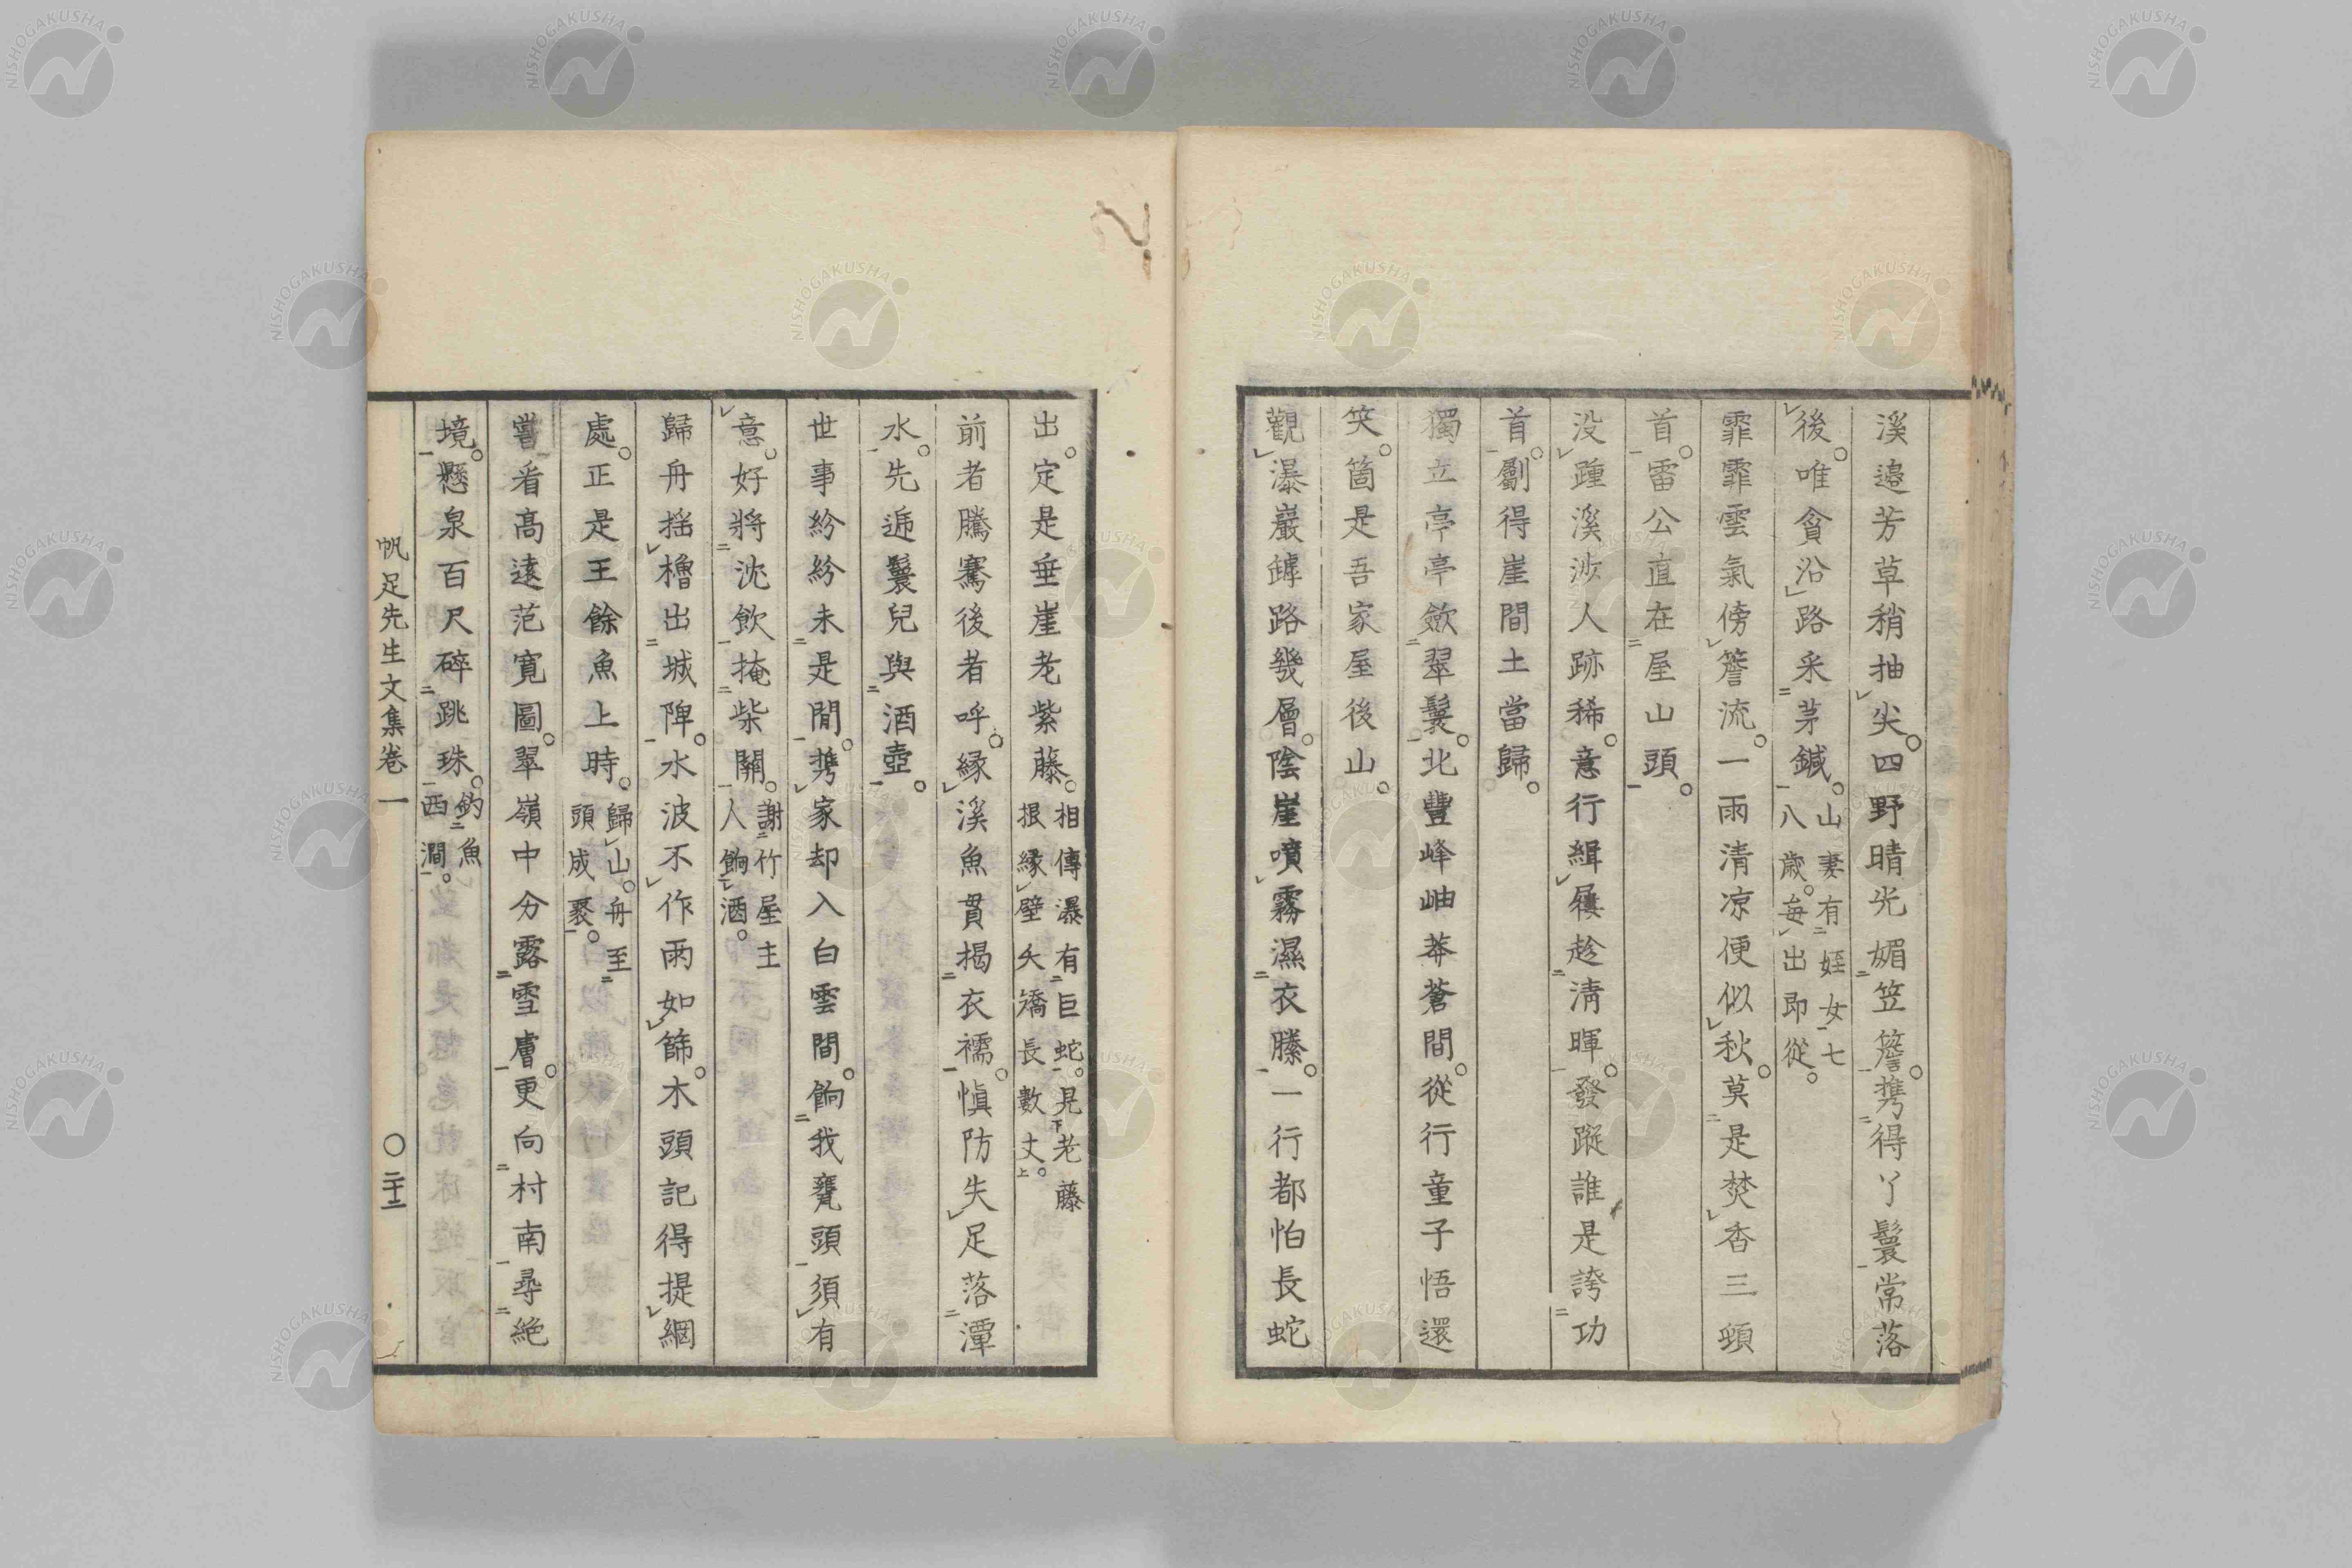 溪邉芳草稍抽尖。四野晴光媚笠簷。携得丫鬟常落
後。唯貪沿路采茅鍼。山妻有姪女七
八歲。每出即從。
霏霏雲氣傍簷流。一雨清凉便似秋。莫是焚香三頓
首。雷公直在屋山頭。
没踵溪渉人跡稀。意行緝屨趁淸暉。發蹤誰是誇功
首。劚得崖間土當歸。
獨立亭亭斂翠鬟。北豐峰岫莽蒼間。從行童子悟還
笑。箇是吾家屋後山。
觀瀑巖罅路幾層。陰崖噴霧濕衣縢。一行都怕長蛇
出。定是垂崖老紫藤。相傳瀑有巨蛇。見老藤
根緣壁夭矯長數丈。
前者騰騫後者呼。縁溪魚貫揭衣襦。愼防失足落潭
水。先逓鬟兒與酒壺。
世事紛紛未是閒。携家却入白雲間。餉我甕頭須有
意。好將沈飲掩柴關。謝竹屋主
人餉酒。
歸舟揺櫓出城陴。水波不作雨如篩。木頭記得提綱
處。正是王餘魚上時。歸山。舟至
頭成聚。
嘗看高遠范寛圖。翠嶺中分露雪膚。更向村南尋絶
境。懸泉百尺碎跳珠。釣魚
西澗。
帆足先生文集卷一
〇二十二
NISHOGAKUSHA